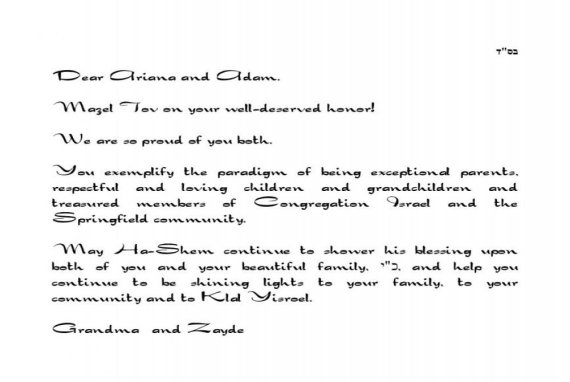 בס"ד
Dear Ariana and Adam,
Mazel Tov on your well-deserved honor!
We are so proud of you both.
You exemplify the paradigm of being exceptional parents,
respectful and loving children and grandchildren and
treasured members of Congregation Israel and the
Springfield community.
May Ha-Shem continue to shower his blessing upon
both of you and your beautiful family, כ"י, and help you
continue to be shining lights to your family, to your
community and to Klal Yisroel.
Grandma and Zayde